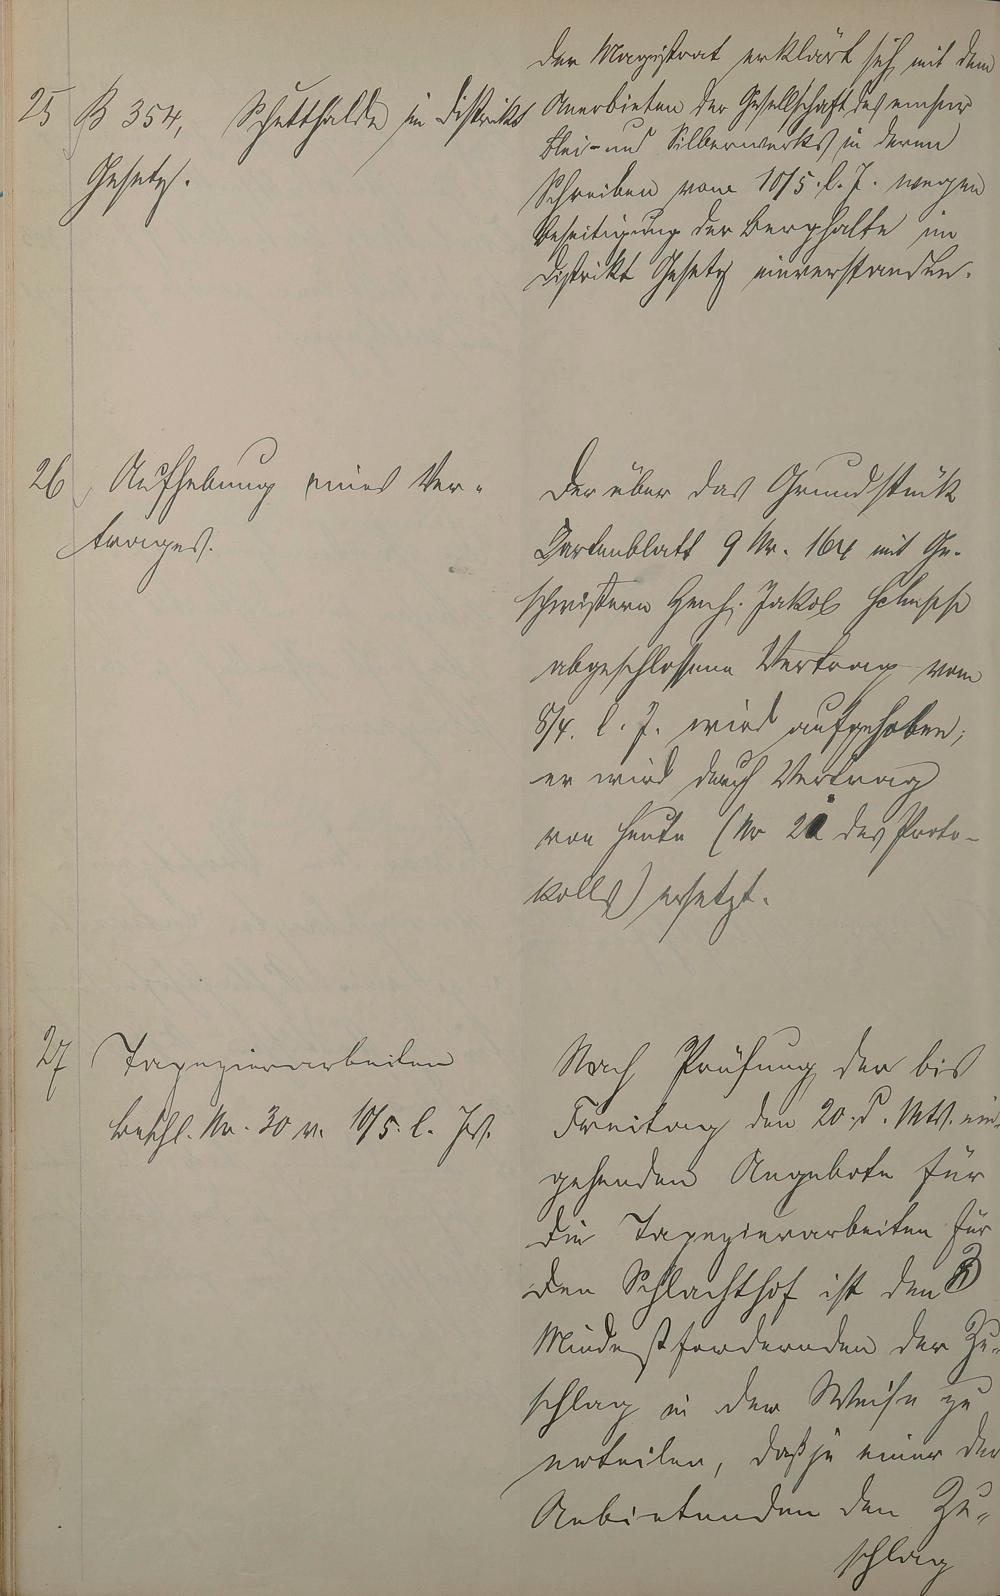 25 B 354, Schutthalde im Distrikt
Gesetz.
Der Magistrat erklärt sich mit dem
Anerbieten der Gesellschaft des emser
Blei- und Silberwerks in deren
Schreiben vom 10/5. l. J. wegen
Beseitigung der Berghalte im
Distrikt Gesetz einverstanden.
26 Aufhebung eines Ver-
trages.
Der über das Grundstück
Kartenblatt 9 Nr. 164 mit Ge-
schwistern Jakob
abgeschlossene Vertrag vom
8/4. l. J. wird aufgehoben;
er wird durch Vertrag
von heute (Nr 2 des Proto-
kolls) ersetzt.
27 Tapezierarbeiten
Beschl. Nr. 30 v. 10/5. l. Js.
Nach Prüfung der bis
Freitag den 20. d. Mts. ein-
gehenden Angebote für
die Tapezierarbeiten für
den Schlachthof ist den 3
Mindestfordernden der Zu-
schlag in der Weise zu
erteilen, daß je einer der
Anbietenden den Zu-
schlag